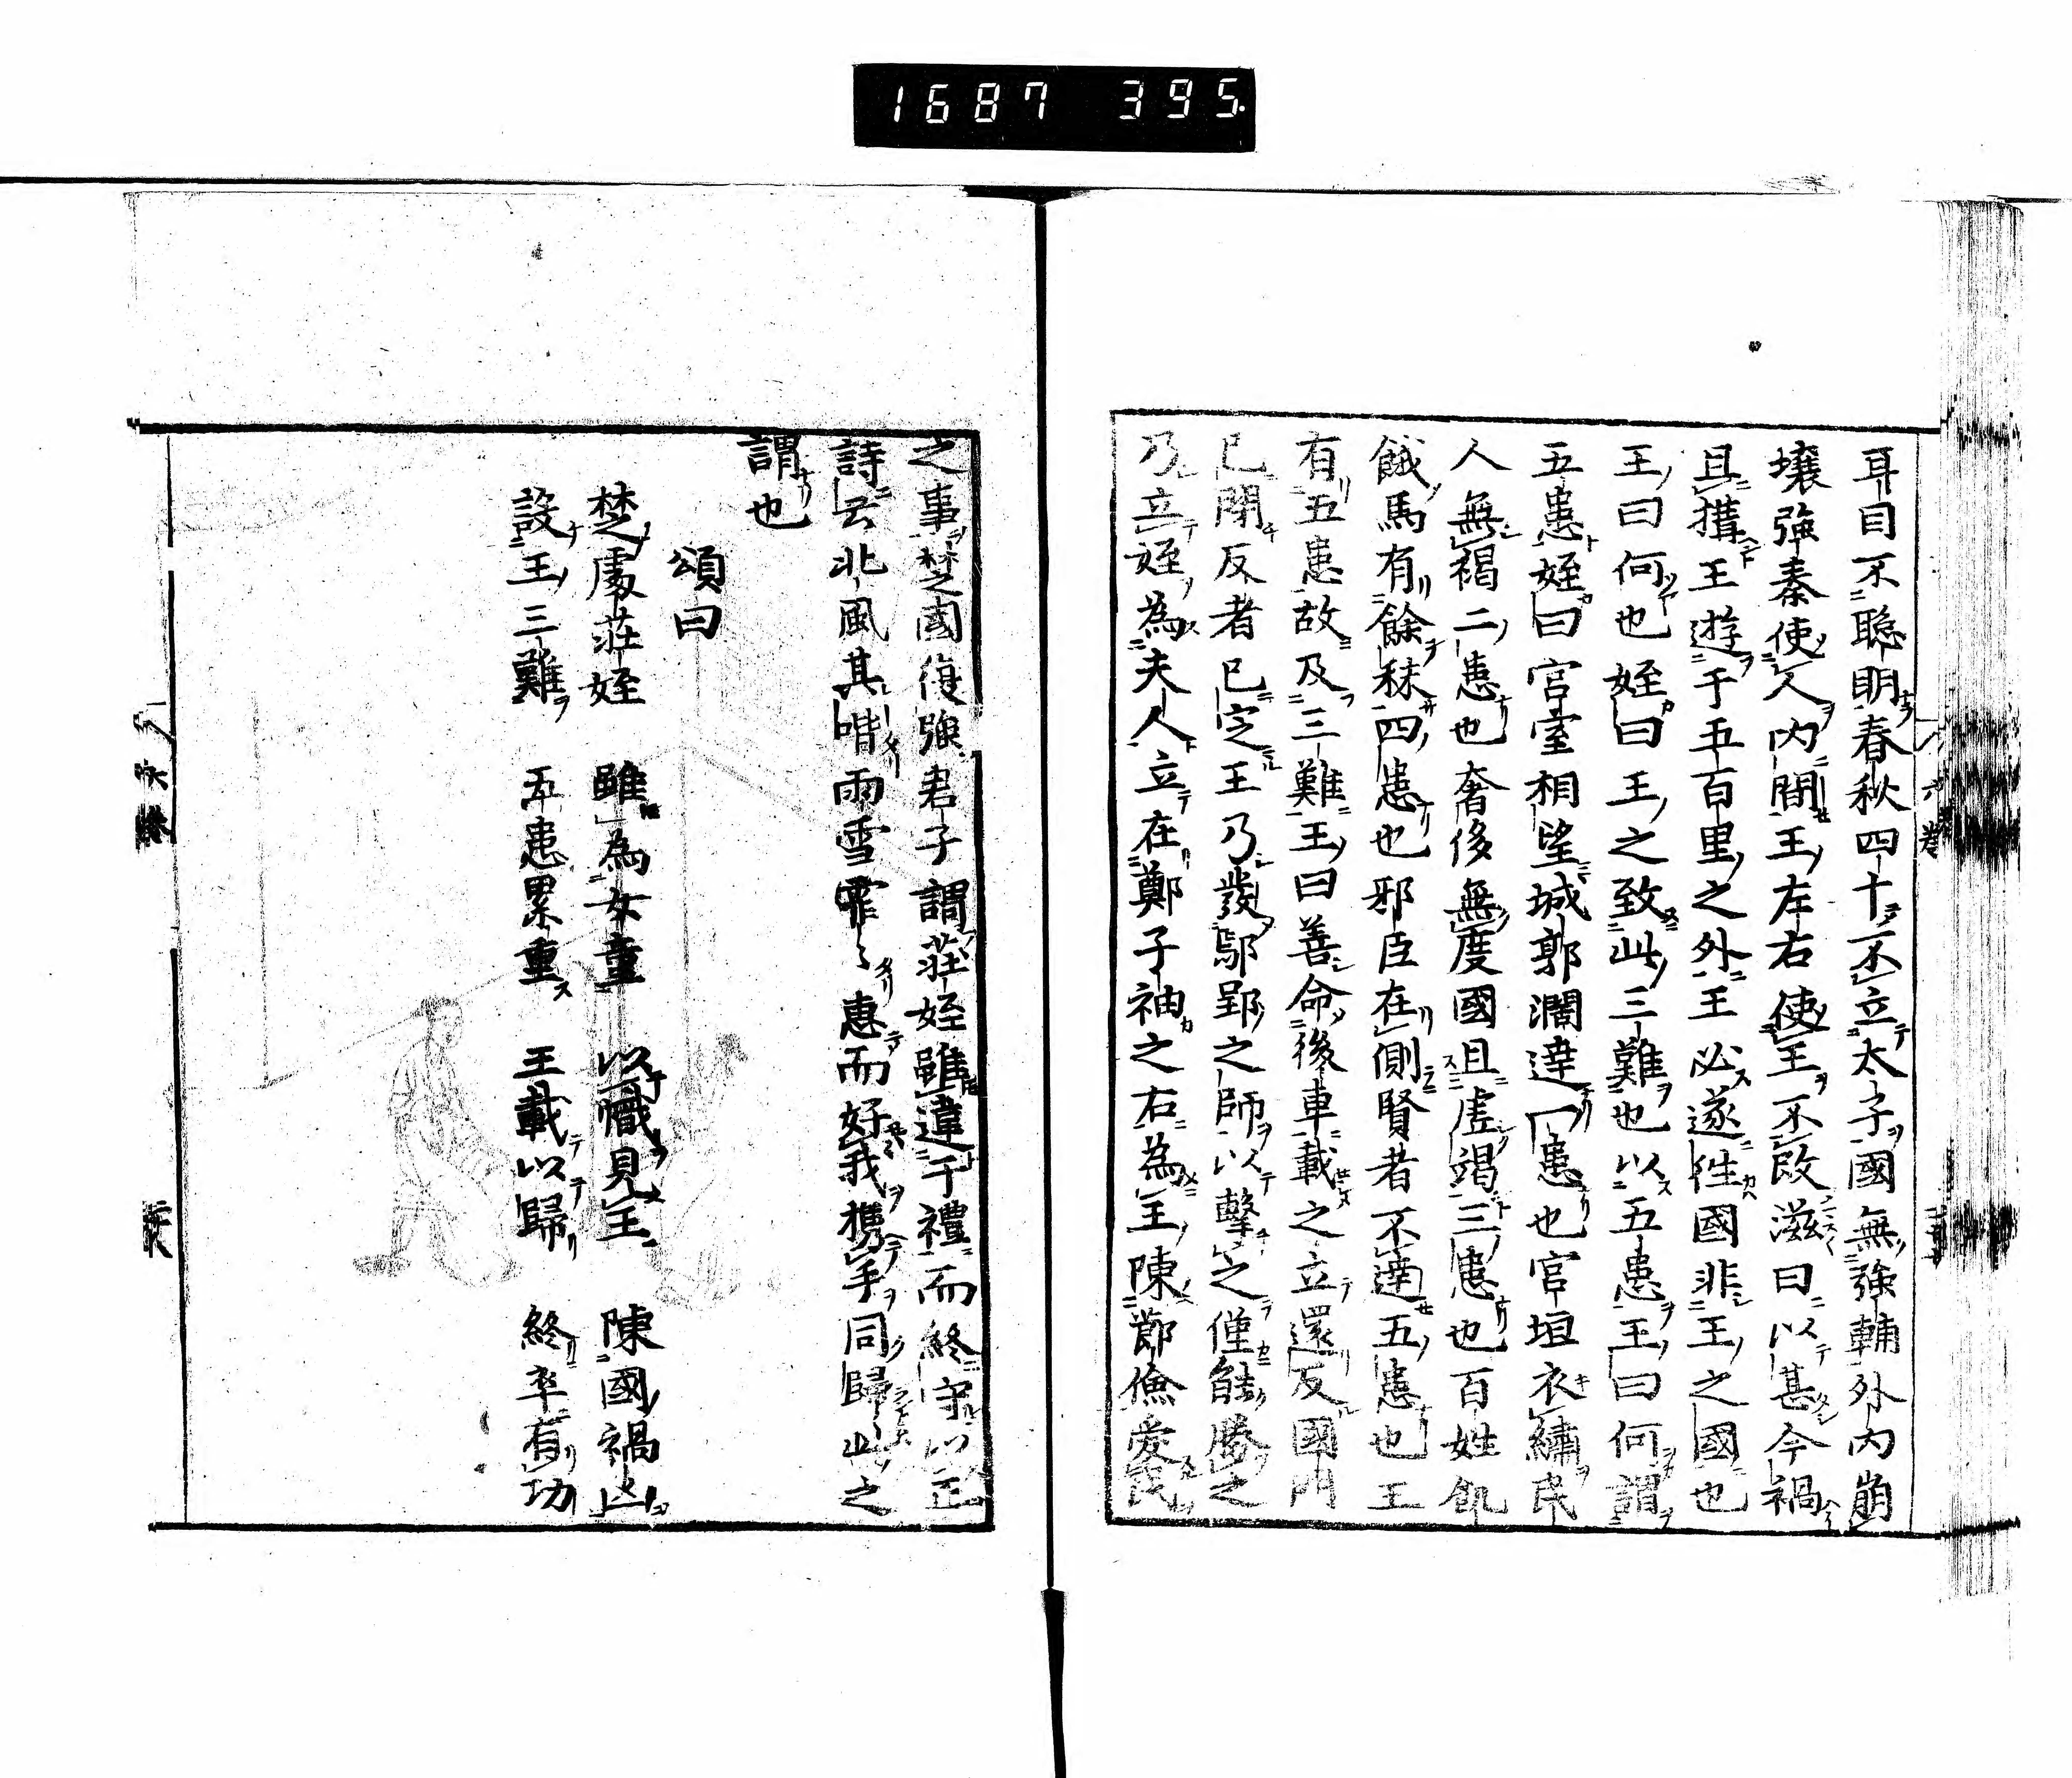 1687 395.
耳目不聡明春秋四十不立太子國無強輔外内崩
壊強秦使人内間王左右使王不改滋曰以甚今禍
且搆王遊于五百里之外王必遂徃國非王之國也
王曰何也姪曰王之致此三難也以五患王曰何謂
五患姪曰宮室相望城郭濶達一患也宮垣衣繡民
人無褐二患也奢侈無度國且虚竭三患也百姓飢
餓馬有餘秣四患也邪臣在側賢者不達五患也王
有五患故及三難王曰善命後車載之立還反國門
已閉反者已定王乃發鄢郢之師以擊之僅能勝之
乃立姪為夫人立在鄭子袖之右為王陳節儉愛民
之事楚國復強君子謂莊姪雖違于禮而終守以正
詩云北風其喈雨雪霏〻惠而好我携手同歸此之
謂也
頌曰
楚處莊姪 雖為女童 以幟見王 陳國禍凶
設王三難 五患累重 王載以歸 終卒有功